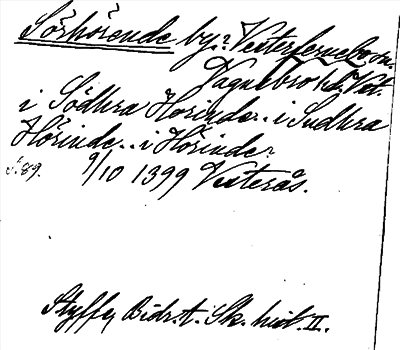 Sörhörende by, Vesterfernebo sn.
Vagnsbro hd. Vst.
i Södhra Horinde.. i Sudhra
Hörinde.. i Hörinde
s. 89. 9/10 1399 Vesterås.
Styffe, Bidr. t. Sk. hist. II.